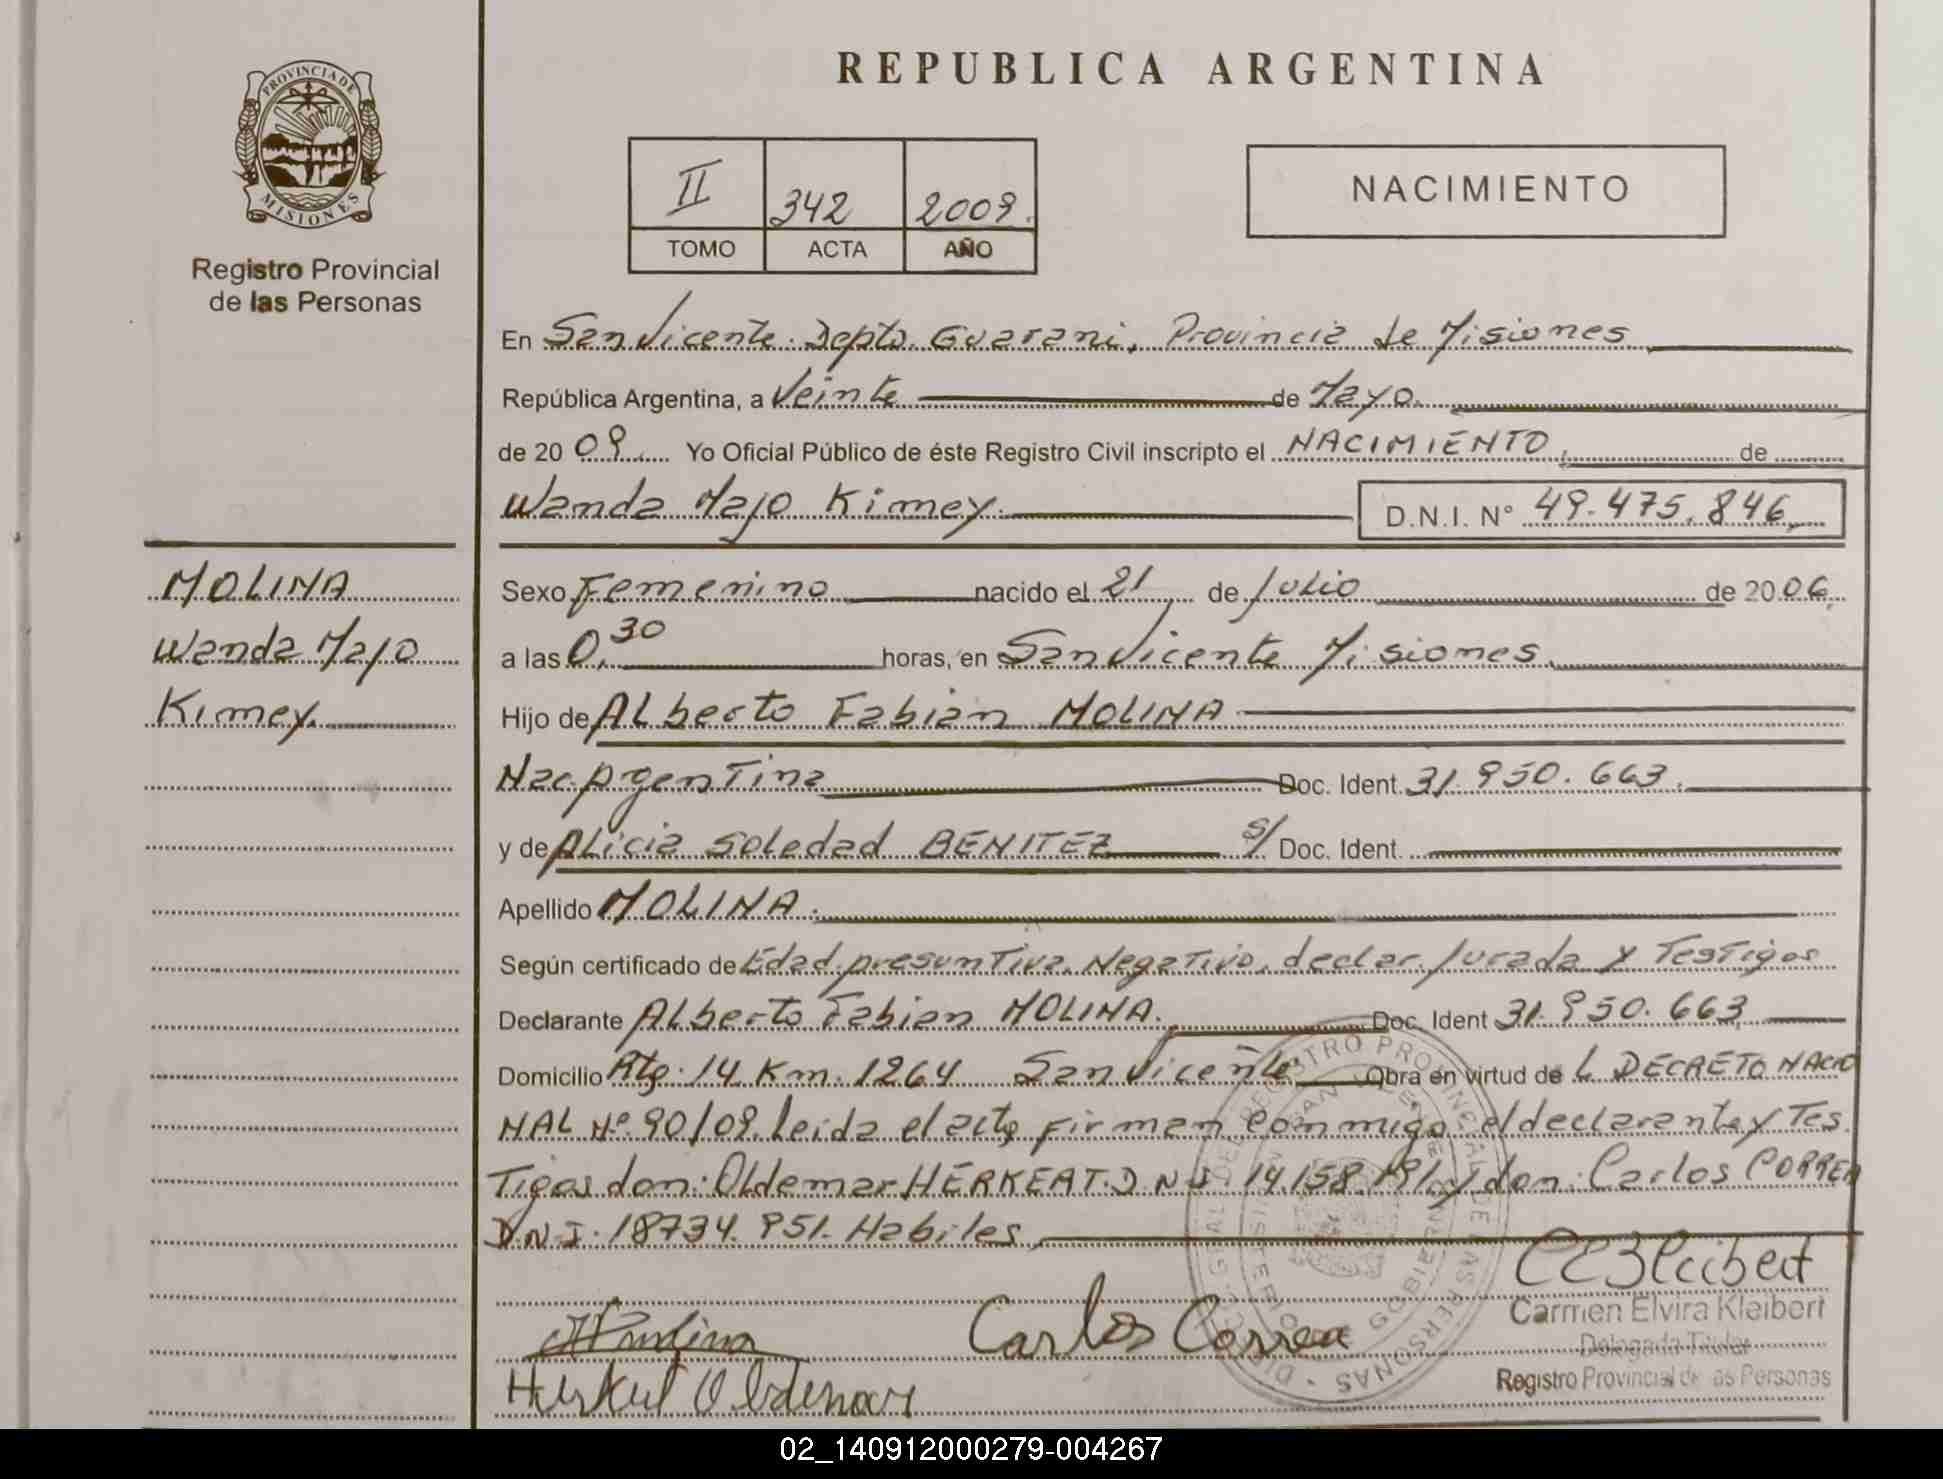 REPUBLICA ARGENTINA
PROVINCIA DE
MISIONES
Registro Provincial
de las Personas
II 342 2009.
TOMO ACTA AÑO
NACIMIENTO
En San Vicente. Depto. Guarani, Provincia de Misiones
República Argentina, a Veinte de Mayo.
de 2009 Yo Oficial Público de éste Registro Civil inscripto el NACIMIENTO, de
Wanda Majo Kimey. D.N.I. N° 49.475.846,
MOLINA
Wanda Majo
Kimey.
Sexo Femenino nacido el 21 de Julio de 2006,
a las 0,30 horas, en San Vicente Misiones,
Hijo de Alberto Fabian MOLINA
Nac. Argentina Doc. Ident. 31.950.663.
y de Alicia Soledad BENITEZ s/ Doc. Ident.
Apellido MOLINA.
Según certificado de Edad presuntiva, Negativo, declar. Jurada y Testigos
Declarante Alberto Fabian MOLINA. Doc. Ident 31.950.663,
Domicilio Rta. 14 Km. 1264 San Vicente Obra en virtud de L DECRETO NACIO
NAL N°. 90/09. Leida el acta firman conmigo el declarante y Tes
Tigos don: Oldemar HERKERT. D N I 14.158.191. y don: Carlos CORREA
D.N.I. 18734.951. Habiles
CEKleibert
Carmen Elvira Kleibert
Delegada Titular
Registro Provincial de las Personas
Carlos Correa
Herkert Oldemar
02_140912000279-004267